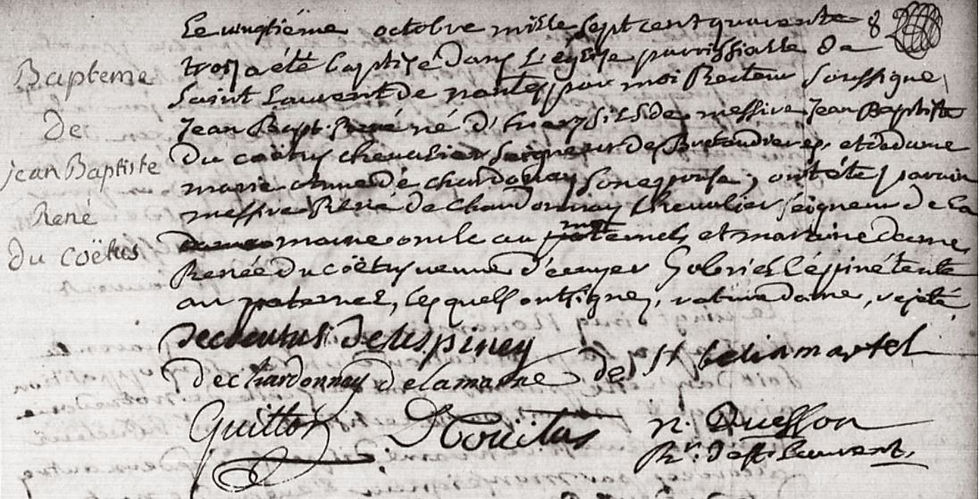 Bapteme
de
jean Baptiste
René
du coëtus
Le vingtiéme octobre mille sept cent quarente
trois a été baptisé dans l'eglise parroissialle de
Saint Laurent de nantes par moi Recteur soussigné
jean Bapt. René né d'hier fils de messire jean Baptiste
du coëtus chevalier Seigneur des et dame
marie anne de chardonnay son epouse, ont été parain
messire René de chardonnay chevalier seigneur de la
marne oncle au mat et maraine dame
Renée du coëtus veuve d'ecuyer Gabriel Lépiné tente
au paternel, lesquels ont signé,
de lespiney
de chardonnay de lamarne de St martel
Guitton D Coüëtus n.
Rr. de St Laurent.